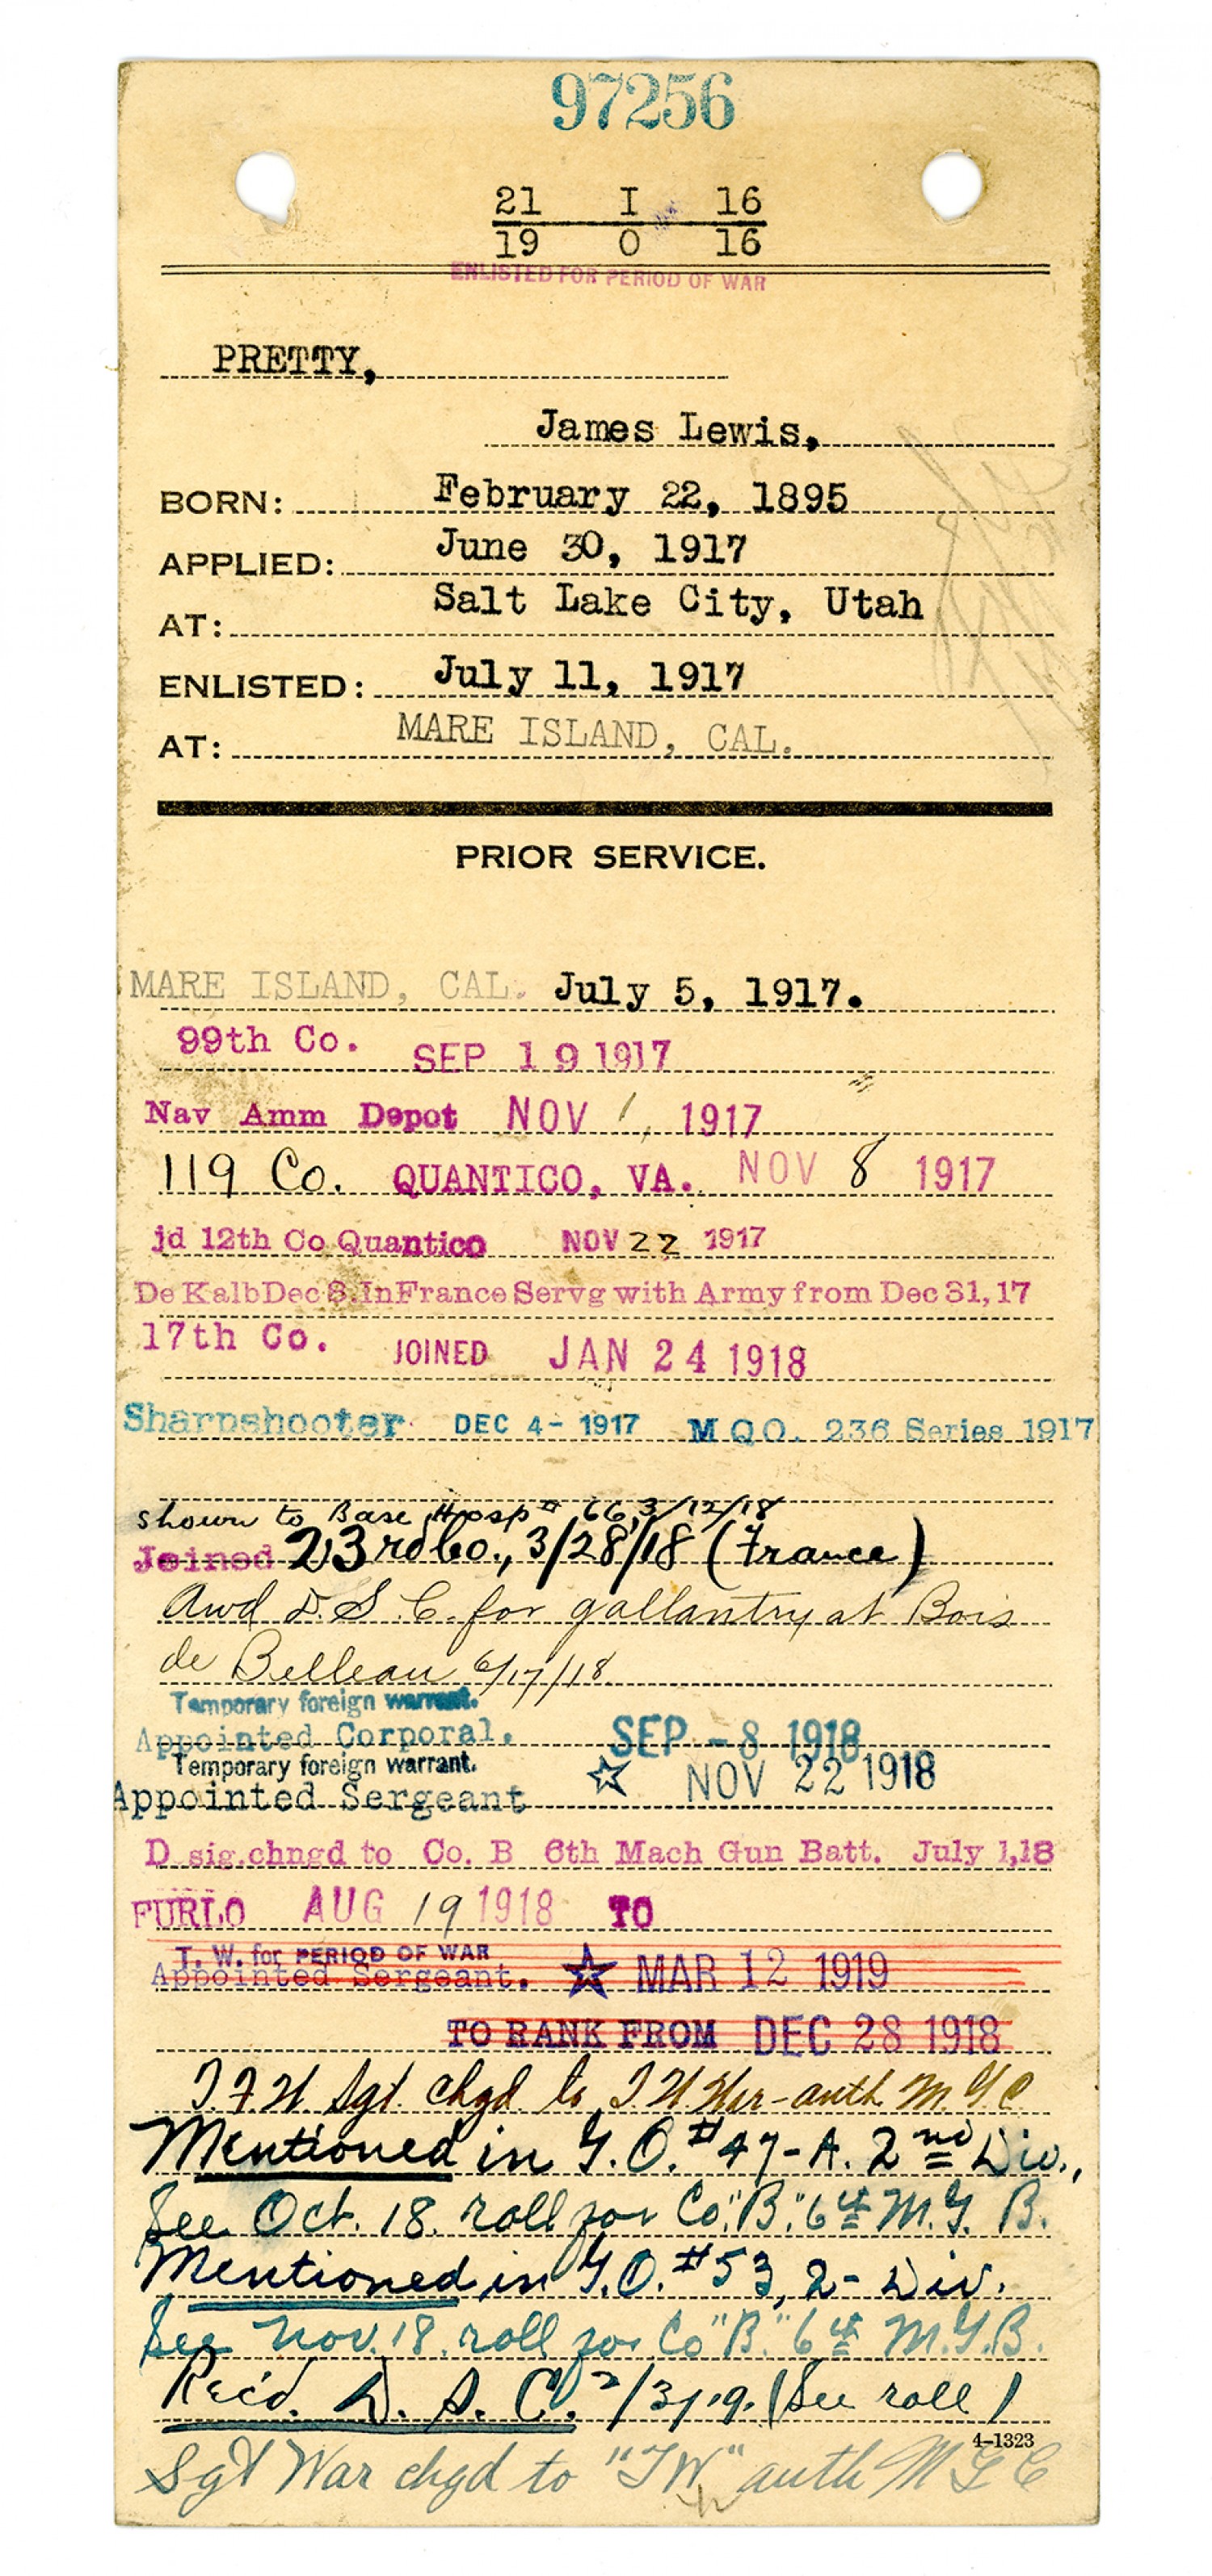 97256
21 I 16
19 0 16
ENLISTED FOR PERIOD OF WAR
PRETTY,
James Lewis,
BORN: February 22, 1895
APPLIED: June 30, 1917
AT: Salt Lake City, Utah
ENLISTED: July 11, 1917
AT: MARE ISLAND, CAL.
PRIOR SERVICE.
MARE ISLAND, CAL. July 5, 1917.
99th Co. SEP 19 1917
Nav Amm Depot NOV 1, 1917
119 Co. QUANTICO, VA. NOV 8 1917
jd 12th Co Quantico NOV 22 1917
De Kalb Dec 8. In France Servg with Army from Dec 31, 17
17th Co. JOINED JAN 24 1918
Sharpshooter DEC 4- 1917 M Q O. 236 Series 1917
shown to Base Hosp # 66, 3/12/18
Joined 23rd Co., 3/28/18 (France)
Awd D.S.C. for gallantry at Bois
de Belleau 6/17/18
Temporary foreign warrant.
Appointed Corporal. SEP - 8 1918
Temporary foreign warrant.
Appointed Sergeant ☆ NOV 22 1918
D sig. chngd to Co. B 6th Mach Gun Batt. July 1, 18
FURLO AUG 19 1918 TO
T. W. for PERIOD OF WAR
Appointed Sergeant. ☆ MAR 12 1919
TO RANK FROM DEC 28 1918
Sgt. chgd to auth M.G.C
Mentioned in G.O. #47-A. 2nd Div.,
See Oct. 18. roll for Co. "B." 6th M.G. B.
Mentioned in G.O. #53, 2- Div.
See Nov. 18. roll for Co "B." 6th M.G.B.
Rec'd. D. S. C. 2/3/19. (See roll)
4-1323
Sgt War chgd to "TW" auth M G C